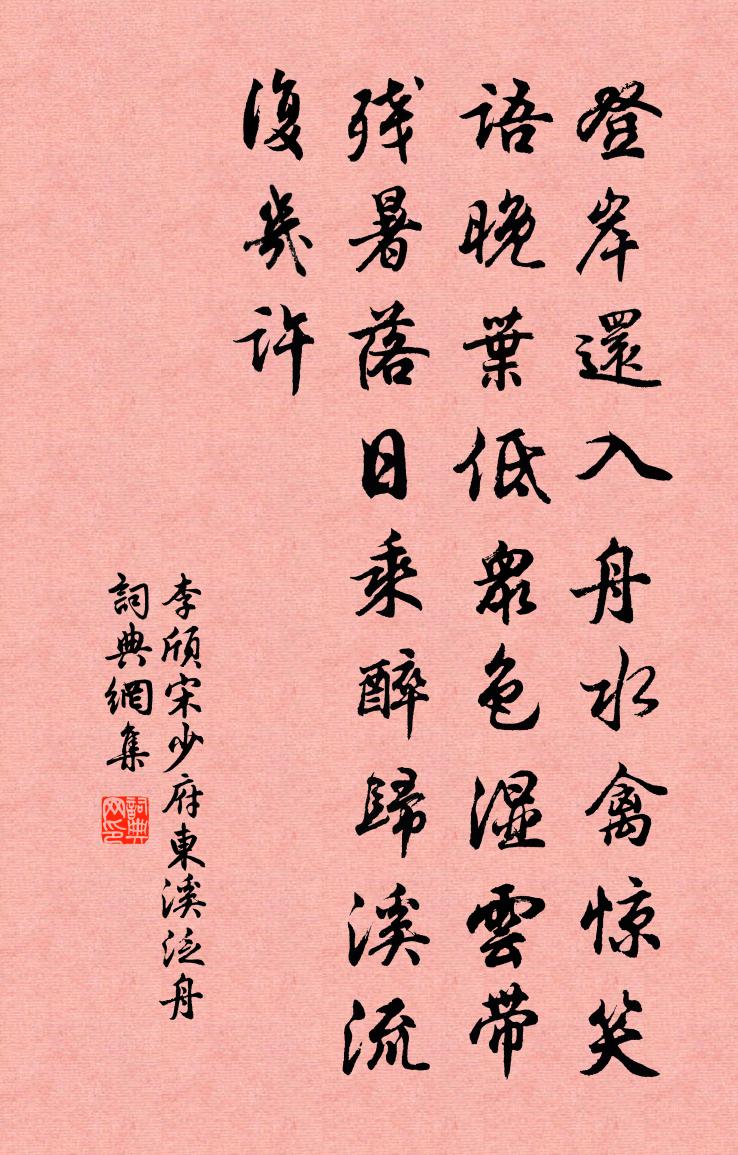 登岸還入舟水禽惊笑
語晚葉低眾色湿雲帶
残暑落日乘醉歸溪流
復幾許
李頎宋少府東溪泛舟
詞典網集
詞典网印